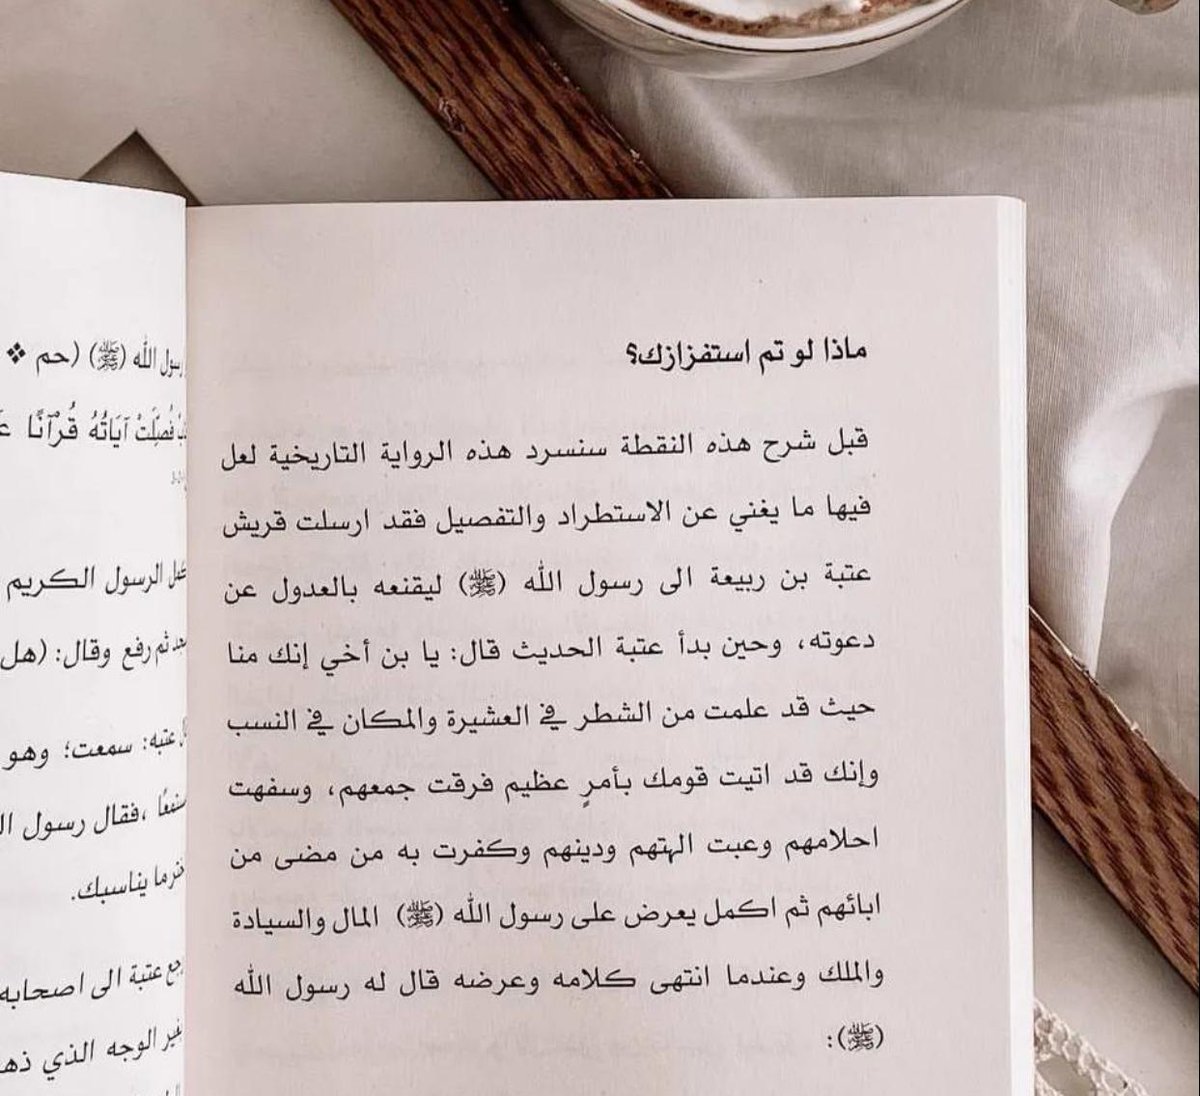 ماذا لو تم استفزازك؟
قبل شرح هذه النقطة سنسرد هذه الرواية التاريخية لعل
فيها ما يغني عن الاستطراد والتفصيل فقد ارسلت قريش
عتبة بن ربيعة الى رسول الله (ﷺ) ليقنعه بالعدول عن
دعوته، وحين بدأ عتبة الحديث قال: يا بن أخي إنك منا
حيث قد علمت من الشطر في العشيرة والمكان في النسب
وإنك قد اتيت قومك بأمرٍ عظيم فرقت جمعهم، وسفهت
احلامهم وعبت الهتهم ودينهم وكفرت به من مضى من
ابائهم ثم اكمل يعرض على رسول الله (ﷺ) المال والسيادة
والملك وعندما انتهى كلامه وعرضه قال له رسول الله
(ﷺ):
رسول الله (ﷺ) (حم ❖
فُصِّلَتْ آيَاتُهُ قُرْآنًا
الرسول الكريم
ثم رفع وقال: (هل
عتبه: سمعت؛ وهو
،فقال رسول
ما يناسبك.
عتبة الى اصحابه
الوجه الذي